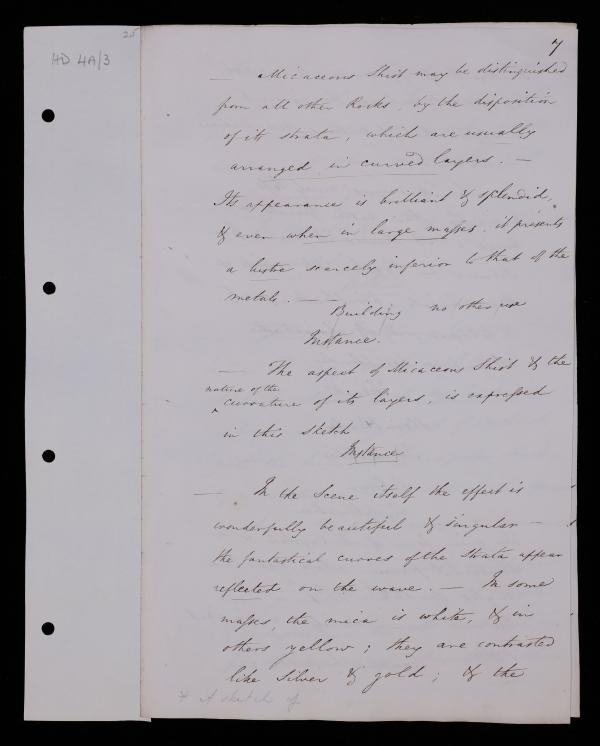 25
HD 4A/3
7
— Micaceous Shist may be distinguished
from all other Rocks, by the disposition
of its strata, which are usually
arranged in curved layers. —
Its appearance is brilliant & splendid,
& even when in large masses, it presents
a lustre scarcely inferior to that of the
metals. — —
Building no other use
Instance.
— The aspect of Micaceous Shist & the
nature of the
^ curvature of its layers, is expressed
in this sketch
Instance
— In the Scene itself the effect is
wonderfully beautiful & singular —
the fantastical curves of the strata appear
reflected on the wave. — In some
masses, the mica is white, & in
others yellow; they are contrasted
like Silver & gold; & the
* A sketch of